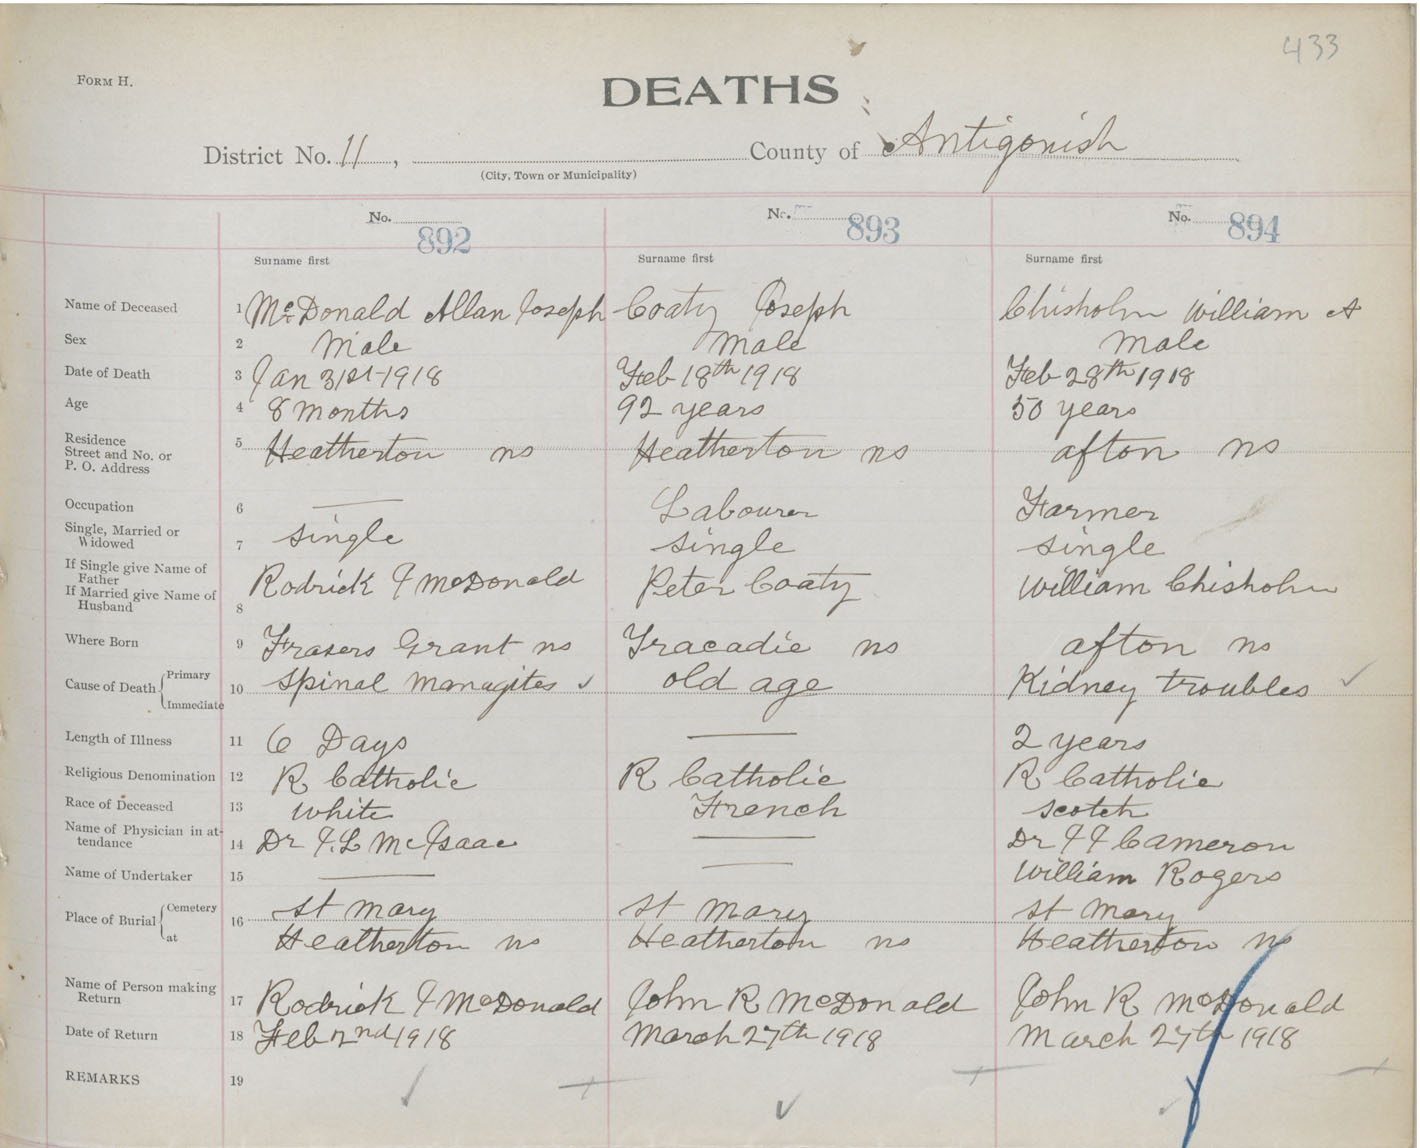 433
FORM H.
DEATHS
District No. 11, County of Antigonish
(City, Town or Municipality)
No. 892 No. 893 No. 894
Surname first Surname first Surname first
Name of Deceased 1 McDonald Allan Joseph Coaty Joseph Chisholm William A
Sex 2 Male Male Male
Date of Death 3 Jan 31st 1918 Feb 18th 1918 Feb 28th 1918
Age 4 8 months 92 years 50 years
Residence
Street and No. or
P. O. Address 5 Heatherton ns Heatherton ns afton ns
Occupation 6 — Labourer Farmer
Single, Married or
Widowed 7 single single single
If Single give Name of
Father
If Married give Name of
Husband 8 Rodrick J McDonald Peter Coaty William Chisholm
Where Born 9 Frasers Grant ns Tracadie ns afton ns
Cause of Death { Primary
Immediate 10 spinal managites ✓ old age Kidney troubles ✓
Length of Illness 11 6 Days — 2 years
Religious Denomination 12 R Catholic R Catholic R Catholic
Race of Deceased 13 white French scotch
Name of Physician in at-
tendance 14 Dr J.L McIsaac — Dr J J Cameron
Name of Undertaker 15 — — William Rogers
Place of Burial { Cemetery 16 st Mary st Mary st Mary
at Heatherton ns Heatherton ns Heatherton ns
Name of Person making
Return 17 Rodrick J McDonald John R McDonald John R McDonald
Date of Return 18 Feb 2nd 1918 March 27th 1918 March 27th 1918
REMARKS 19